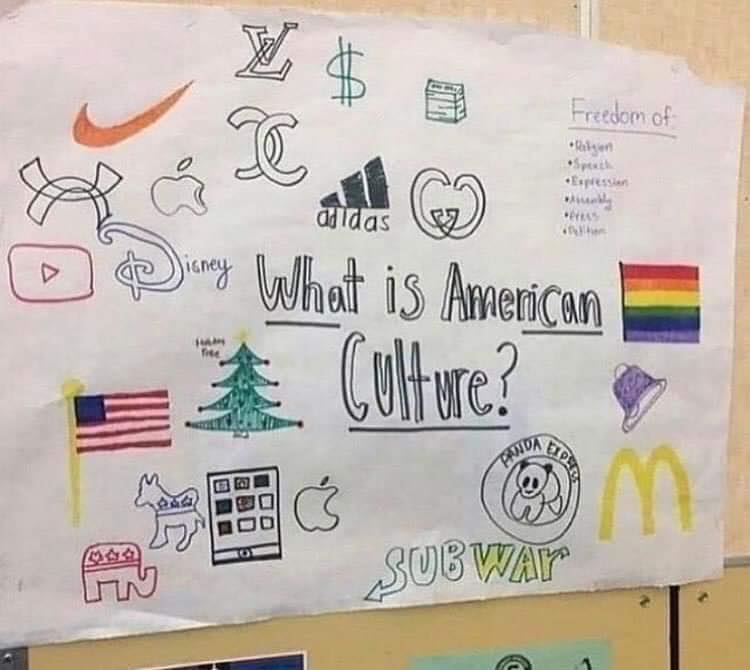 LV
$
Freedom of:
• Religion
• Speech
• Expression
• Assembly
• Press
• Petition
adidas
Disney
What is American
Culture?
Tree
PANDA EXPRESS
SUBWAY